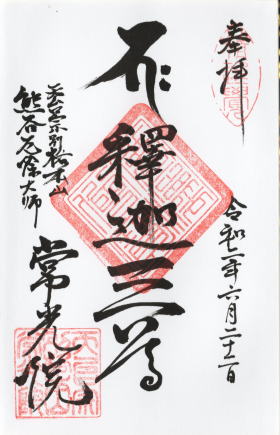 奉拝
令和二年六月二十二日
釋迦三尊
天台宗別格本山
熊谷元除大師
常光院